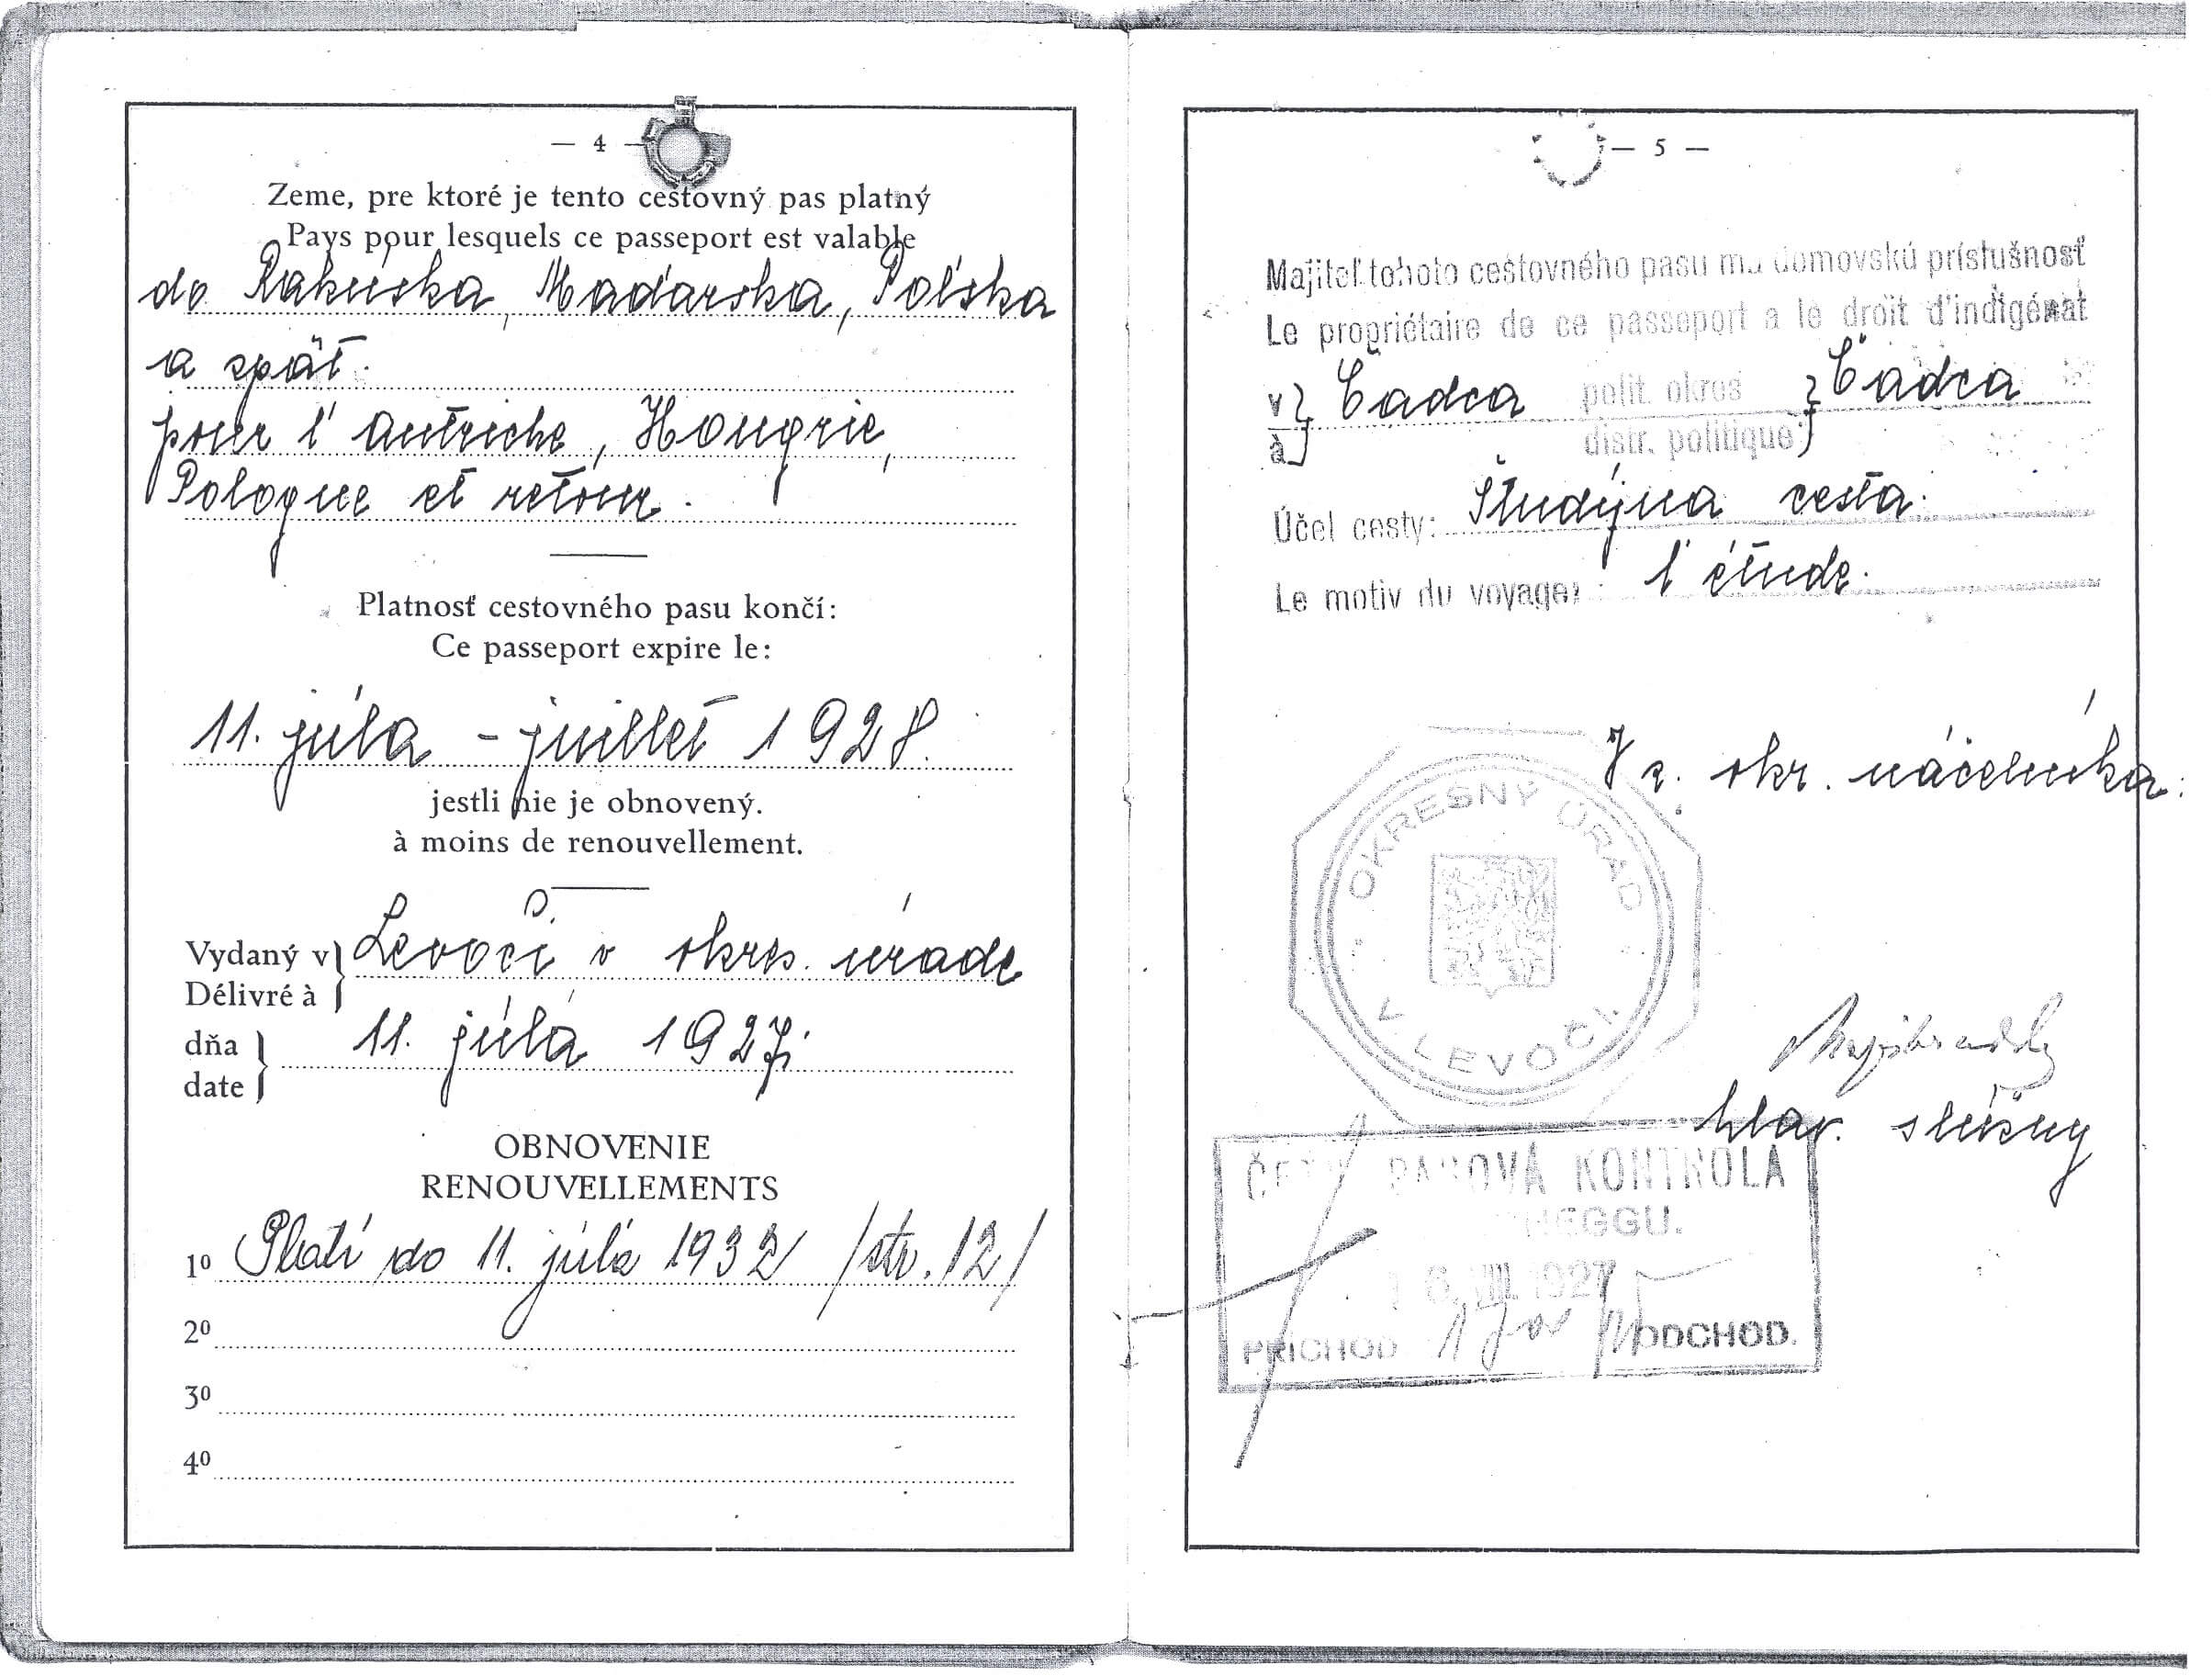 — 4 —
Zeme, pre ktoré je tento cestovný pas platný
Pays pour lesquels ce passeport est valable
do Rakúska, Maďarska, Poľska
a späť.
pour l'Autriche, Hongrie,
Pologne et retour.
Platnosť cestovného pasu končí:
Ce passeport expire le:
11. júla - juillet 1928.
jestli nie je obnovený.
à moins de renouvellement.
Vydaný v} Levoči v okres. úrade
Délivré à
dňa} 11. júla 1927
date
OBNOVENIE
RENOUVELLEMENTS
1º Platí do 11. júla 1932 /str. 12/
2º
3º
4º
— 5 —
Majiteľ tohoto cestovného pasu má domovskú príslušnosť
Le propriétaire de ce passeport a le droit d'indigénat
v} Čadca polit. okres } Čadca
à distr. politique
Účel cesty: Študijná cesta.
Le motiv du voyage: l'étude.
Za okr. náčelníka:
OKRESNÝ ÚRAD
V LEVOČI.
hlav. slúžny
PASOVÁ KONTROLA
VIII. 1927
PRÍCHOD ODCHOD.